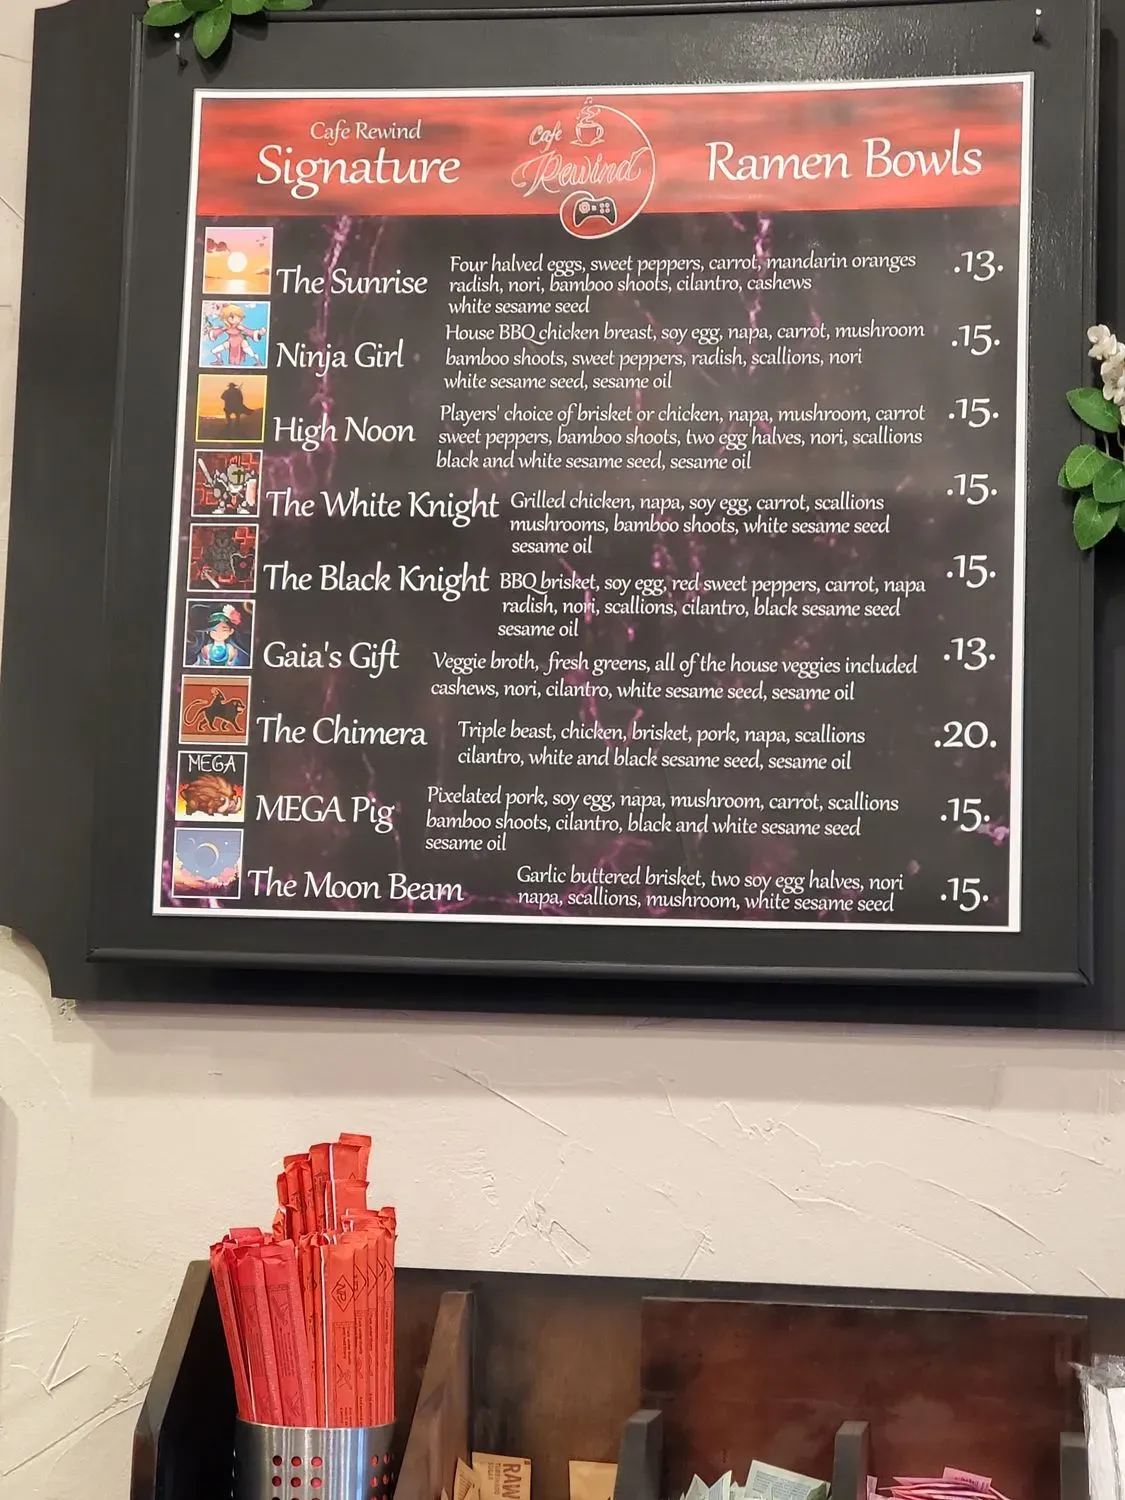 Cafe Rewind
Signature
Cafe
Rewind
Ramen Bowls
The Sunrise
Four halved eggs, sweet peppers, carrot, mandarin oranges
radish, nori, bamboo shoots, cilantro, cashews
white sesame seed
.13.
Ninja Girl
House BBQ chicken breast, soy egg, napa, carrot, mushroom
bamboo shoots, sweet peppers, radish, scallions, nori
white sesame seed, sesame oil
.15.
High Noon
Players' choice of brisket or chicken, napa, mushroom, carrot
sweet peppers, bamboo shoots, two egg halves, nori, scallions
black and white sesame seed, sesame oil
.15.
The White Knight
Grilled chicken, napa, soy egg, carrot, scallions
mushrooms, bamboo shoots, white sesame seed
sesame oil
.15.
The Black Knight
BBQ brisket, soy egg, red sweet peppers, carrot, napa
radish, nori, scallions, cilantro, black sesame seed
sesame oil
.15.
Gaia's Gift
Veggie broth, fresh greens, all of the house veggies included
cashews, nori, cilantro, white sesame seed, sesame oil
.13.
The Chimera
Triple beast, chicken, brisket, pork, napa, scallions
cilantro, white and black sesame seed, sesame oil
.20.
MEGA
MEGA Pig
Pixelated pork, soy egg, napa, mushroom, carrot, scallions
bamboo shoots, cilantro, black and white sesame seed
sesame oil
.15.
The Moon Beam
Garlic buttered brisket, two soy egg halves, nori
napa, scallions, mushroom, white sesame seed
.15.
RAW